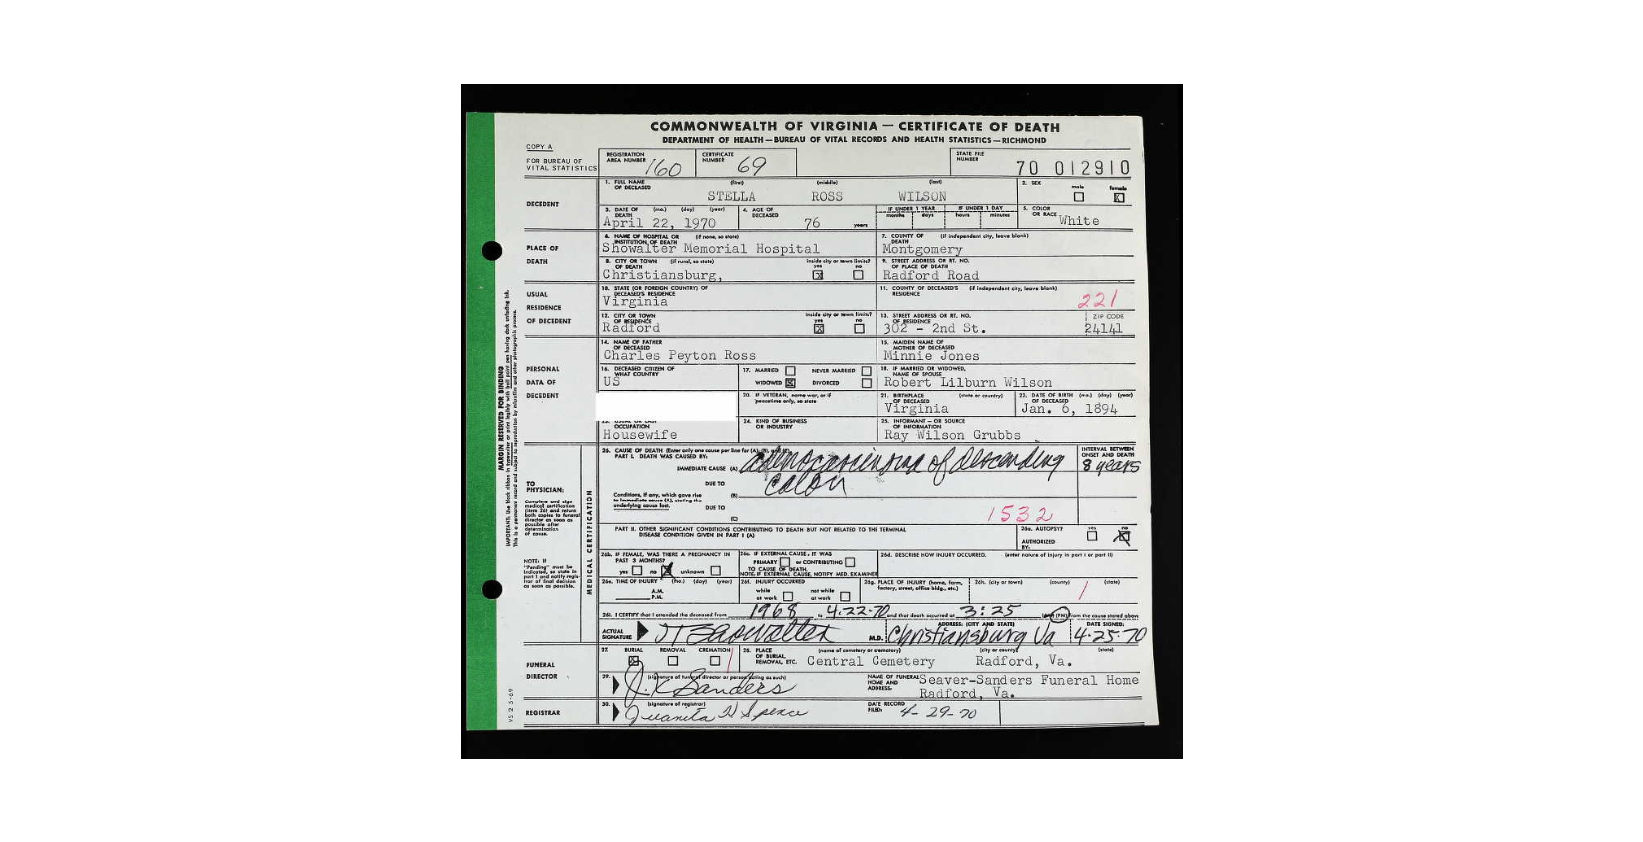 COMMONWEALTH OF VIRGINIA — CERTIFICATE OF DEATH
DEPARTMENT OF HEALTH—BUREAU OF VITAL RECORDS AND HEALTH STATISTICS—RICHMOND
COPY A
FOR BUREAU OF VITAL STATISTICS
REGISTRATION AREA NUMBER 160
CERTIFICATE NUMBER 69
STATE FILE NUMBER 70 012910
DECEDENT
1. FULL NAME OF DECEASED (first) (middle) (last)
STELLA ROSS WILSON
2. SEX male female X
3. DATE OF DEATH (mo.) (day) (year)
April 22, 1970
4. AGE OF DECEASED 76 years
IF UNDER 1 YEAR months days
IF UNDER 1 DAY hours minutes
5. COLOR OR RACE White
PLACE OF DEATH
6. NAME OF HOSPITAL OR INSTITUTION OF DEATH (if none, so state)
Showalter Memorial Hospital
7. COUNTY OF DEATH (if independent city, leave blank)
Montgomery
8. CITY OR TOWN OF DEATH (if rural, so state) inside city or town limits? yes X no
Christiansburg,
9. STREET ADDRESS OR RT. NO. OF PLACE OF DEATH
Radford Road
USUAL RESIDENCE OF DECEDENT
10. STATE (OR FOREIGN COUNTRY) OF DECEASED'S RESIDENCE
Virginia
11. COUNTY OF DECEASED'S RESIDENCE (if independent city, leave blank)
221
12. CITY OR TOWN OF RESIDENCE inside city or town limits? yes X no
Radford
13. STREET ADDRESS OR RT. NO. OF RESIDENCE
302 - 2nd St.
ZIP CODE
24141
PERSONAL DATA OF DECEDENT
14. NAME OF FATHER OF DECEASED
Charles Peyton Ross
15. MAIDEN NAME OF MOTHER OF DECEASED
Minnie Jones
16. DECEASED CITIZEN OF WHAT COUNTRY
US
17. MARRIED NEVER MARRIED
WIDOWED X DIVORCED
18. IF MARRIED OR WIDOWED, NAME OF SPOUSE
Robert Lilburn Wilson
20. IF VETERAN, name war, or if peacetime only, so state
21. BIRTHPLACE OF DECEASED (state or country)
Virginia
22. DATE OF BIRTH OF DECEASED (mo.) (day) (year)
Jan. 6, 1894
OCCUPATION
Housewife
24. KIND OF BUSINESS OR INDUSTRY
25. INFORMANT - OR SOURCE OF INFORMATION
Ray Wilson Grubbs
TO PHYSICIAN:
Complete and sign medical certification (item 26) and return both copies to funeral director as soon as possible after determination of cause.
NOTE: If "Pending" must be indicated, so state in part I and notify registrar of final decision as soon as possible.
MEDICAL CERTIFICATION
26. CAUSE OF DEATH (Enter only one cause per line for (A), (B), and (C))
PART I. DEATH WAS CAUSED BY:
IMMEDIATE CAUSE (A) Adenocarcinoma of descending
colon
INTERVAL BETWEEN ONSET AND DEATH
8 years
DUE TO
(B)
Conditions, if any, which gave rise to immediate cause (A), stating the underlying cause last.
DUE TO
(C)
1532
PART II. OTHER SIGNIFICANT CONDITIONS CONTRIBUTING TO DEATH BUT NOT RELATED TO THE TERMINAL DISEASE CONDITION GIVEN IN PART I (A)
26a. AUTOPSY? yes no X
AUTHORIZED BY:
26b. IF FEMALE, WAS THERE A PREGNANCY IN PAST 3 MONTHS?
yes no X unknown
26c. IF EXTERNAL CAUSE, IT WAS
PRIMARY or CONTRIBUTING
TO CAUSE OF DEATH.
NOTE: IF EXTERNAL CAUSE, NOTIFY MED. EXAMINER
26d. DESCRIBE HOW INJURY OCCURRED. (enter nature of injury in part I or part II)
26e. TIME OF INJURY (mo.) (day) (year)
A.M.
P.M.
26f. INJURY OCCURRED
while at work not while at work
26g. PLACE OF INJURY (home, farm, factory, street, office bldg., etc.)
26h. (city or town) (county) (state)
26i. I CERTIFY that I attended the deceased from 1968 to 4-22-70 and that death occurred at 3:25 (AM) (PM) from the cause stated above
ACTUAL SIGNATURE
M.D.
ADDRESS: (CITY AND STATE)
Christiansburg Va
DATE SIGNED:
4-25-70
FUNERAL DIRECTOR
27. BURIAL X REMOVAL CREMATION
28. PLACE OF BURIAL, REMOVAL, ETC. (name of cemetery or crematory) (city or county) (state)
Central Cemetery Radford, Va.
29. (signature of funeral director or person acting as such)
J. K. Sanders
NAME OF FUNERAL HOME AND ADDRESS:
Seaver-Sanders Funeral Home
Radford, Va.
REGISTRAR
30. (signature of registrar)
Juanita H Spence
DATE RECORD FILED:
4-29-70
MARGIN RESERVED FOR BINDING
VS 2 5-69